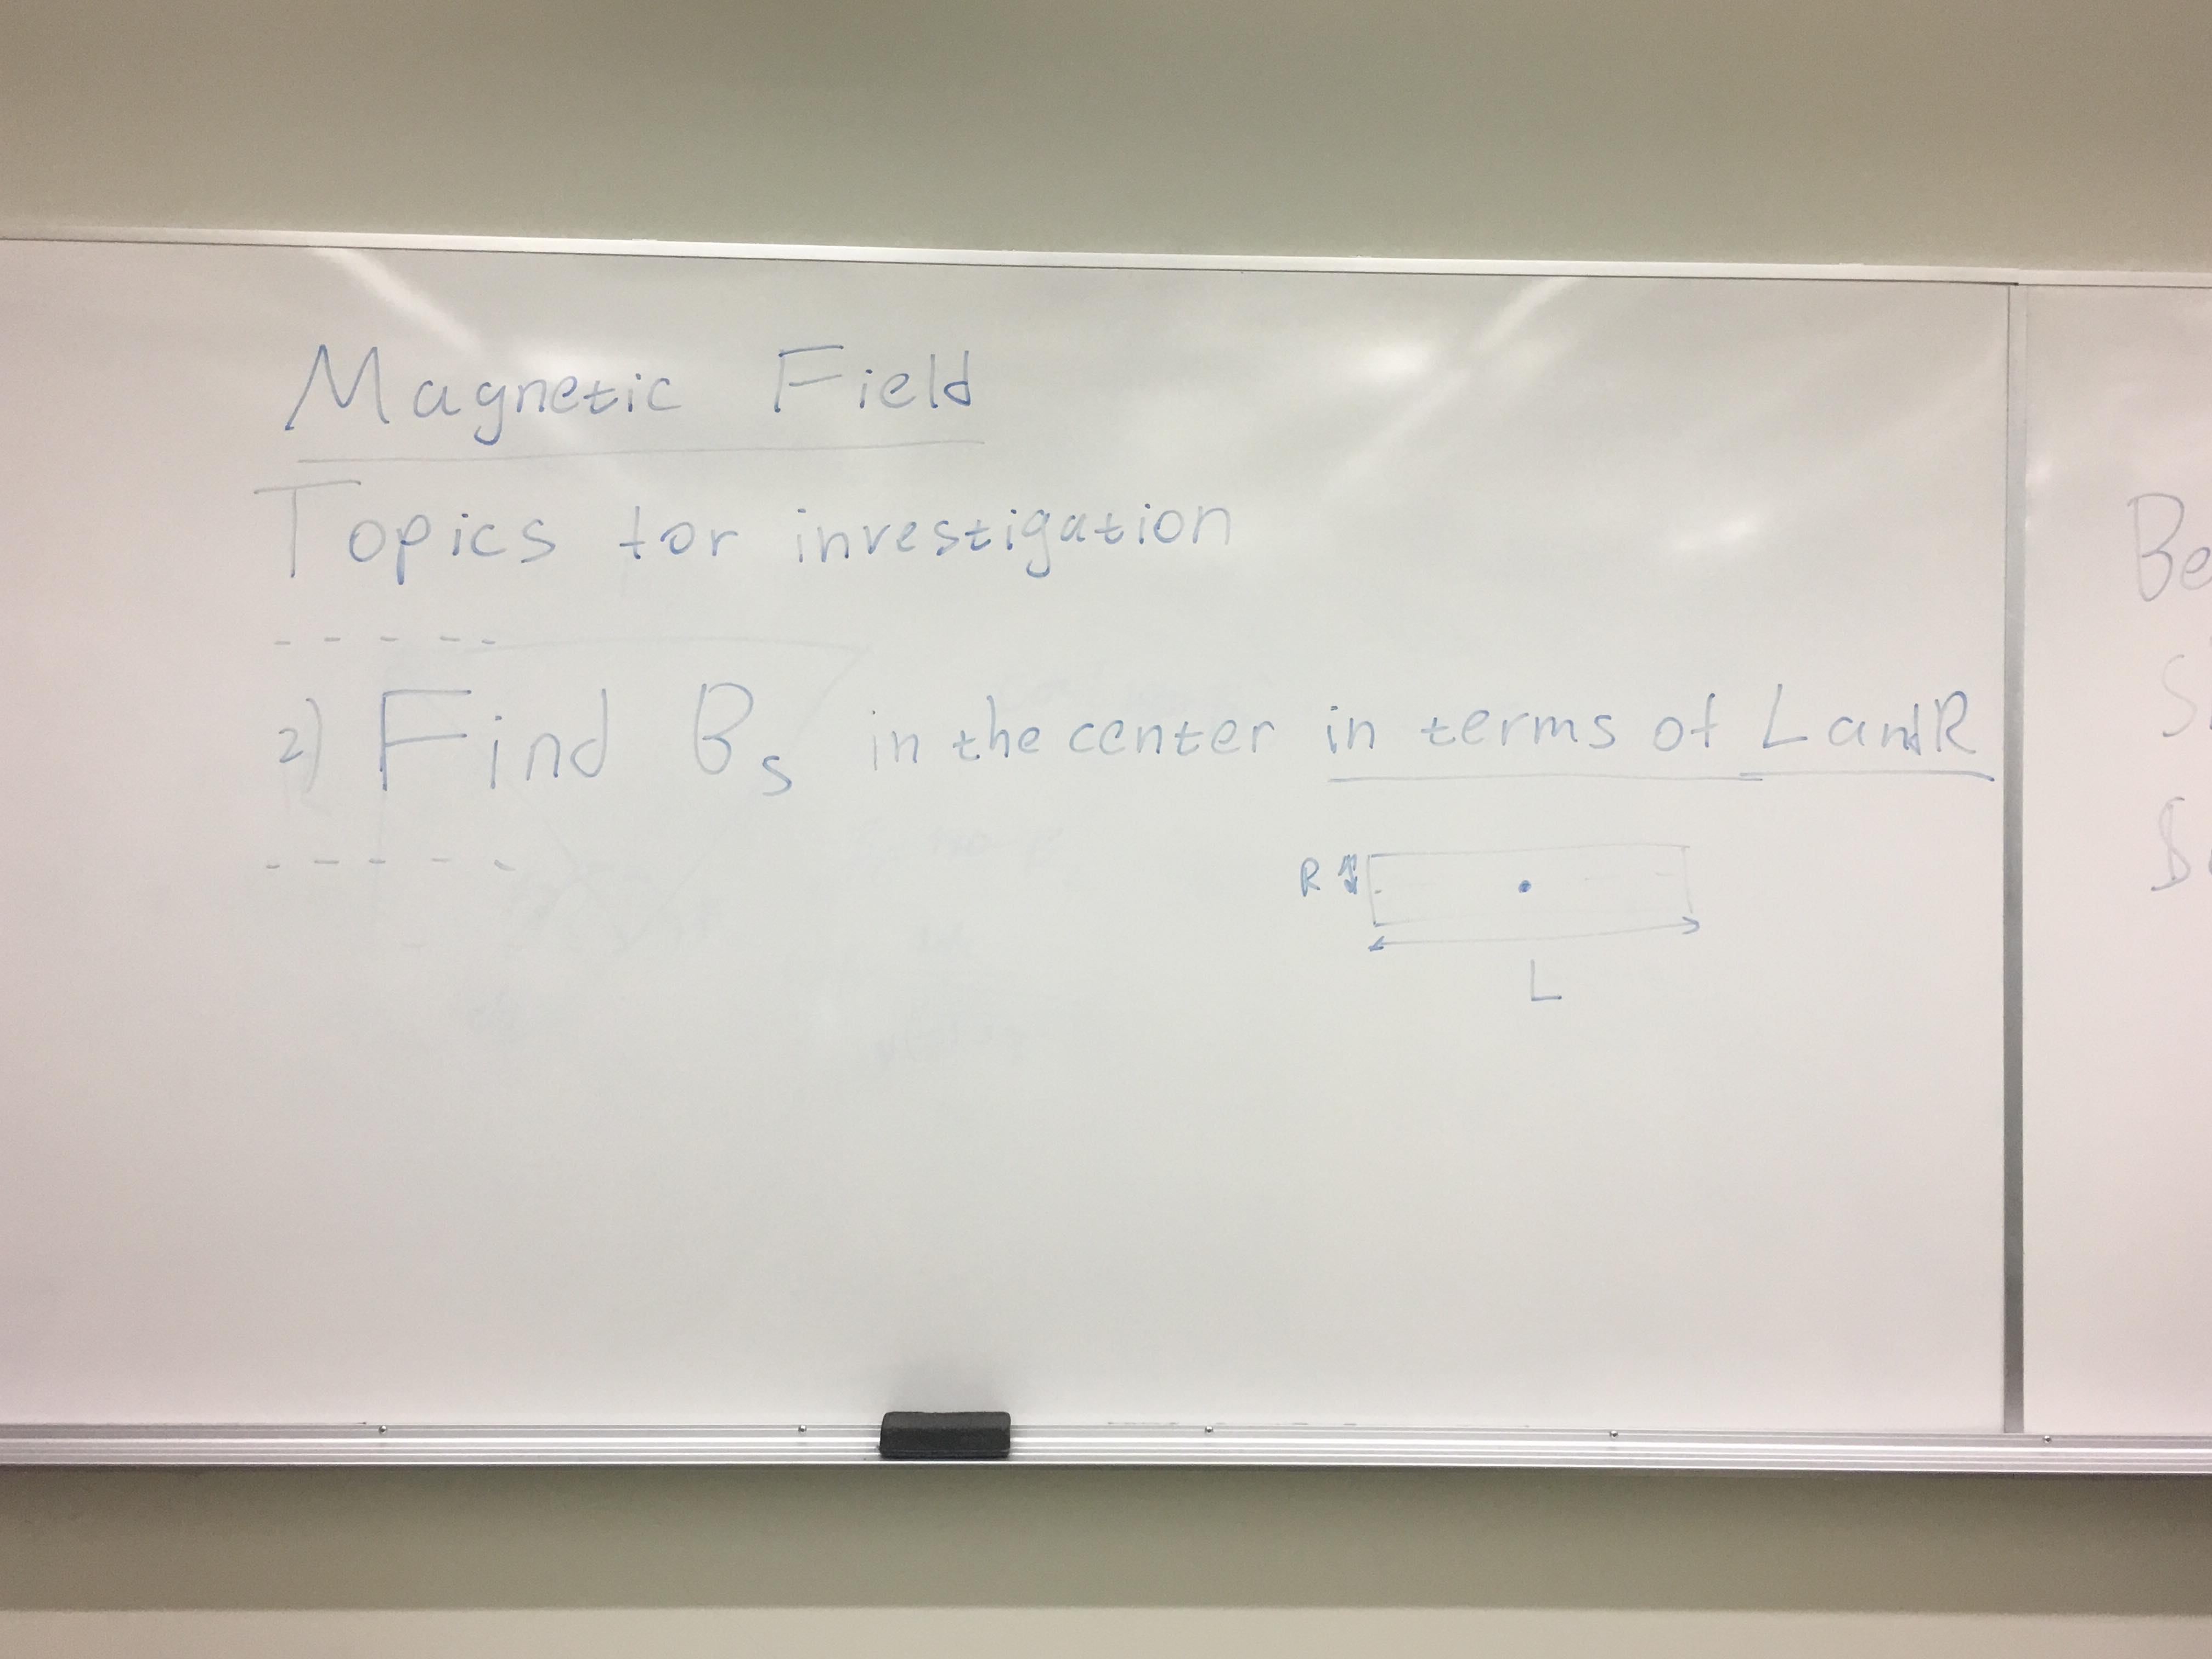 Magnetic Field
Topics for investigation
- - - - -
2) Find Bs in the center in terms of L and R
- - - - -
R
L
Be